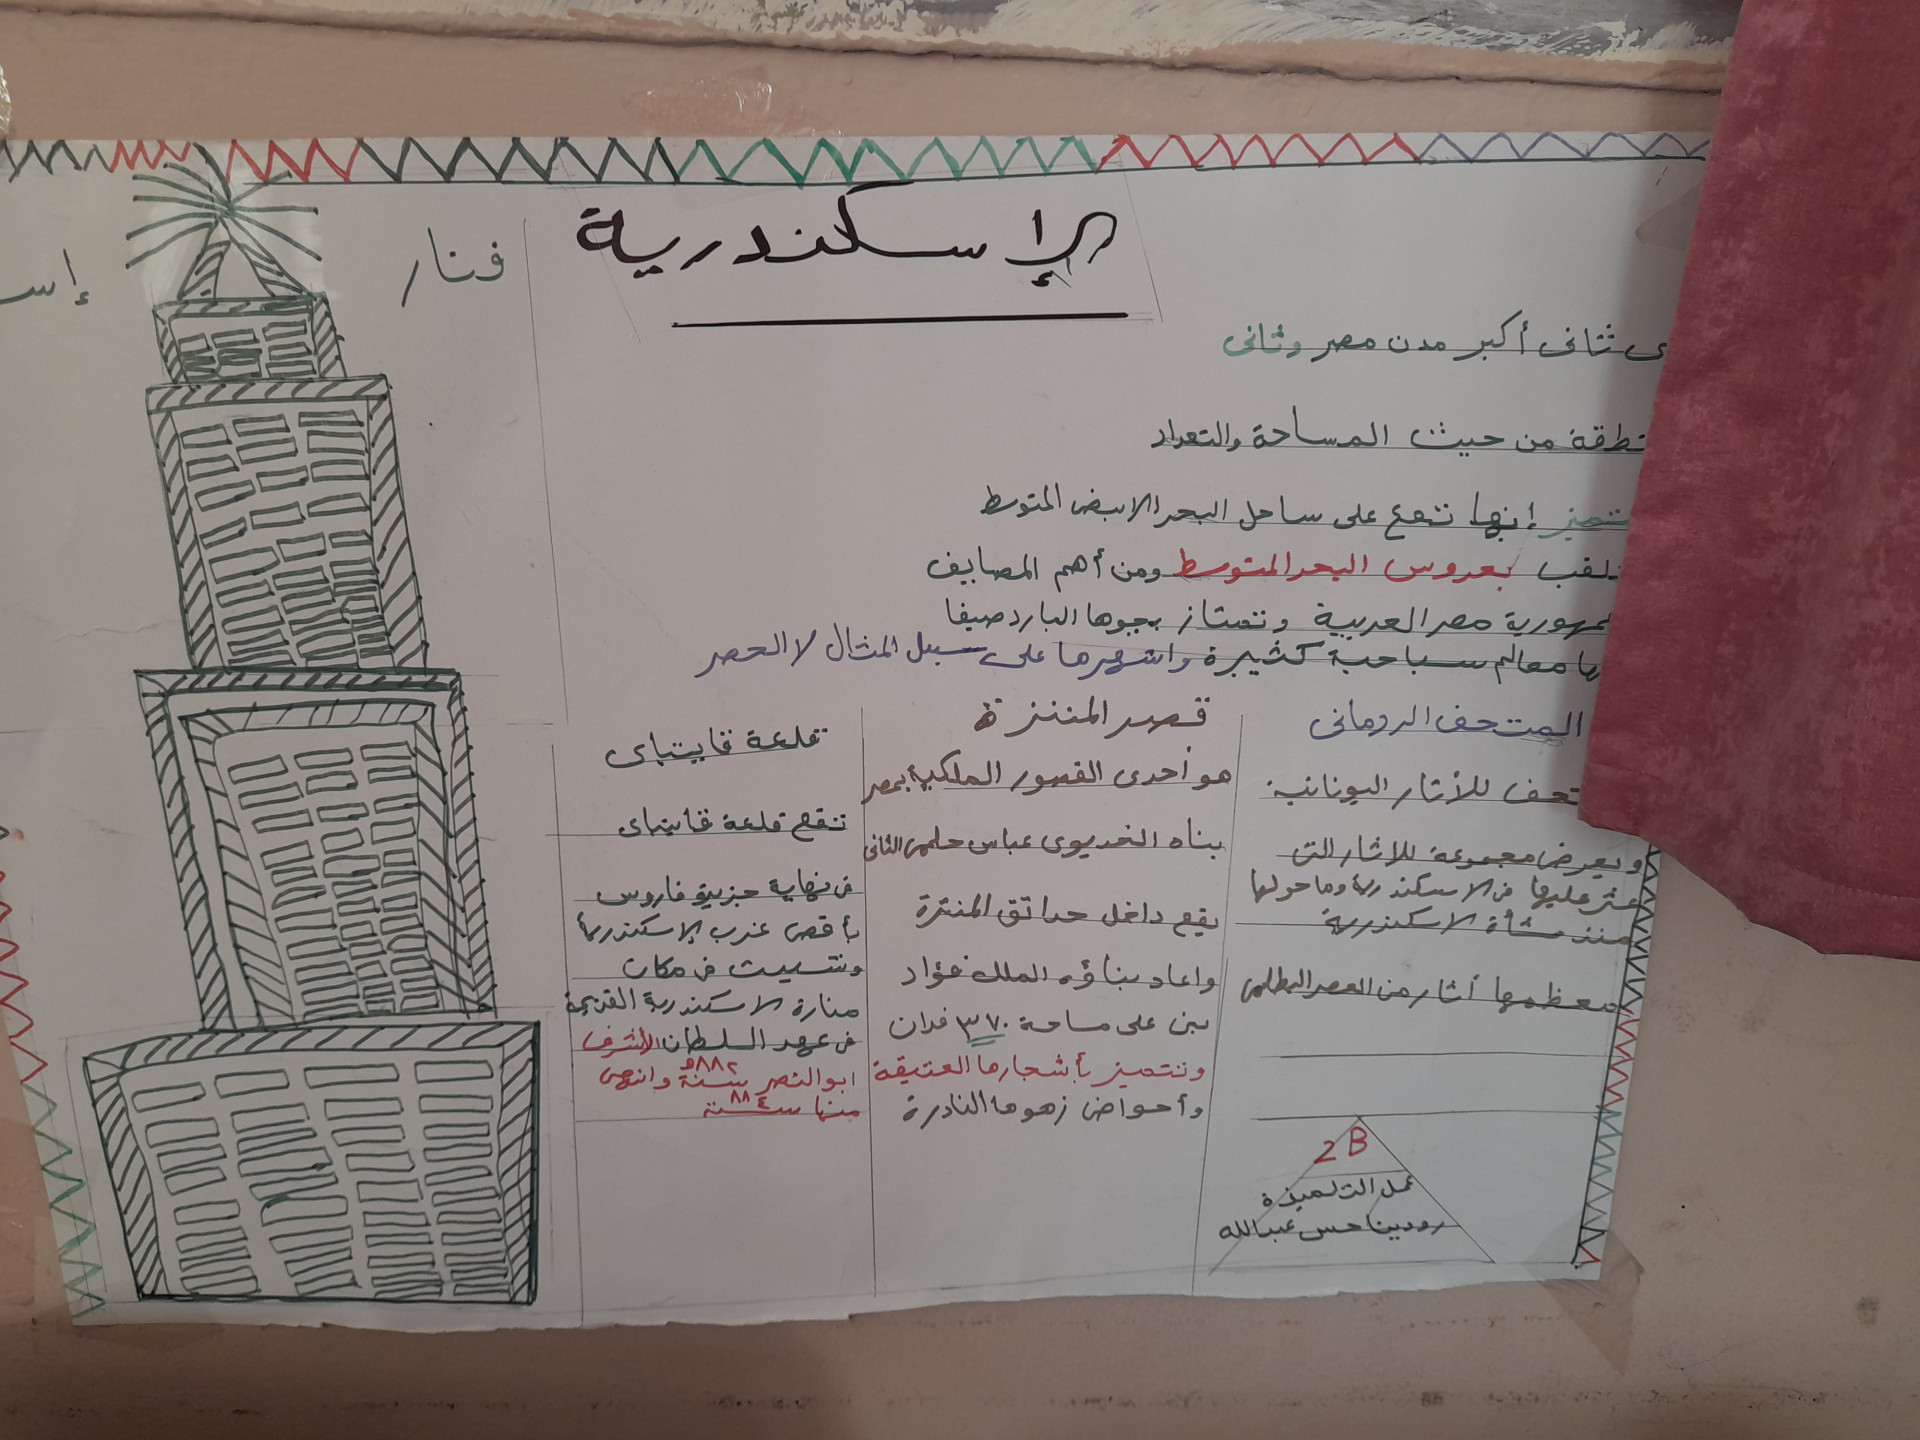 الإسكندرية
فنار
إس
ى ثانى أكبر مدن مصر وثانى
نطقة من حيث المساحة والتعداد
تتميز إنها تقع على ساحل البحر الابيض المتوسط
تلقب بعروس البحر المتوسط ومن أهم المصايف
جمهورية مصر العربية وتمتاز بجوها البارد صيفا
بها معالم سياحية كثيرة واشهرها على سبيل المثال لا الحصر
المتحف الرومانى
تحف للأثار اليونانية
ويعرض مجموعة للاثار التى
عثر عليها فى الاسكندرية وما حولها
منذ منشأة الاسكندرية
معظمها أثار من العصر البطلمى
قصر المنتزة
هو أحدى القصور الملكية بمصر
بناه الخديوى عباس حلمى الثانى
يقع داخل حدائق المنتزة
واعاد بناؤه الملك فؤاد
بنى على مساحة ٣٧٠ فدان
وتتميز بأشجارها العتيقة
وأحواض زهوها النادرة
قلعة قايتباى
تقع قلعة قايتباى
فى نهاية جزيرة فاروس
بأقصى غرب الإسكندرية
وشيدت فى مكان
منارة الاسكندرية القديمة
فى عهد السلطان الأشرف
ابو النصر سنة ٨٨٢ه وانتهى
منها سنة ٨٨٤
2B
عمل التلميذة
رودينا حسن عبدالله